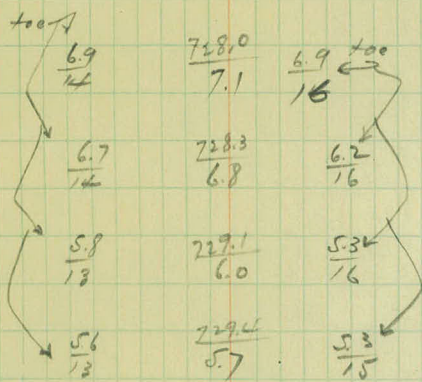 toe toe
6.9/14 728.0/7.1 6.9/16
6.7/14 728.3/6.8 6.2/16
5.8/13 729.1/6.0 5.3/16
5.6/13 729.4/5.7 5.3/15